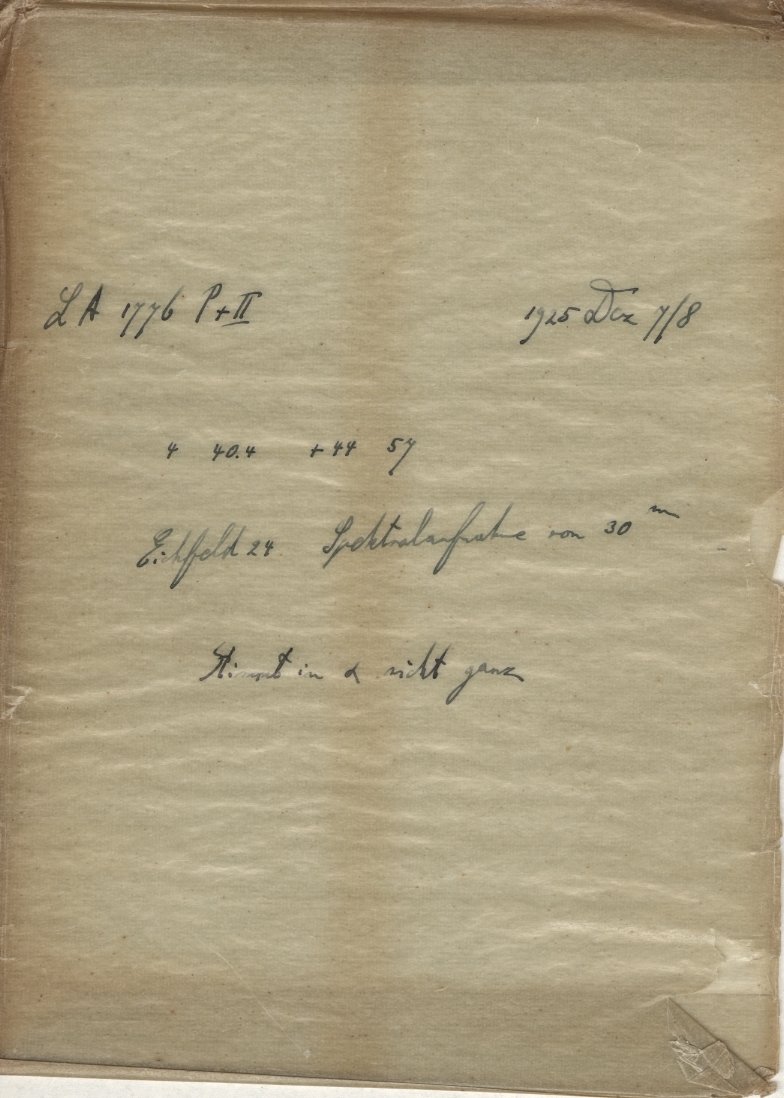 LA 1776 P+II 1925 Dez 7/8
4 40.4 +44 57
Eichfeld 24 Spektralaufnahme von 30 m
Stimmt in α nicht ganz